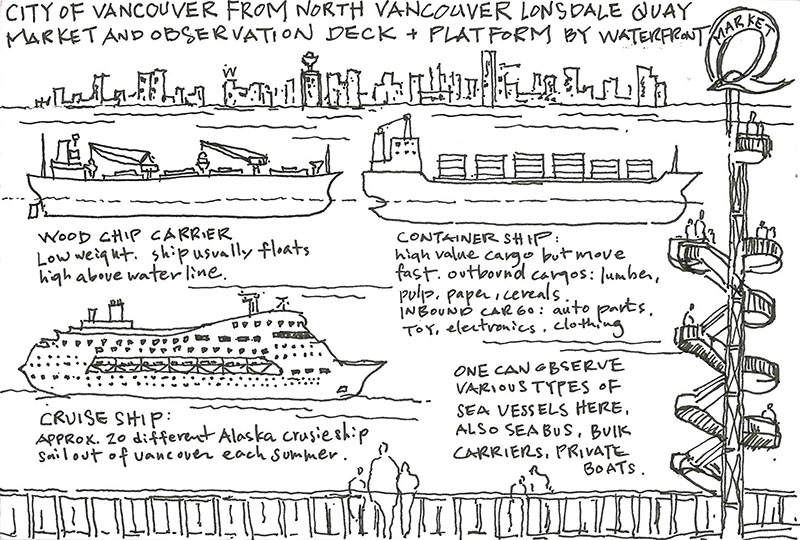 CITY OF VANCOUVER FROM NORTH VANCOUVER LONSDALE QUAY
MARKET AND OBSERVATION DECK + PLATFORM BY WATERFRONT
MARKET
Q
W
WOOD CHIP CARRIER
LOW weight. ship usually floats
high above water line.
CONTAINER SHIP:
high value cargo but move
fast. outbound cargos: lumber,
pulp, paper, cereals.
INBOUND CARGO: auto parts,
TOY, electronics, clothing
CRUISE SHIP:
APPROX. 20 different Alaska crusie ship
sail out of vancover each summer.
ONE CAN OBSERVE
VARIOUS TYPES OF
SEA VESSELS HERE,
ALSO SEABUS, BULK
CARRIERS, PRIVATE
BOATS.